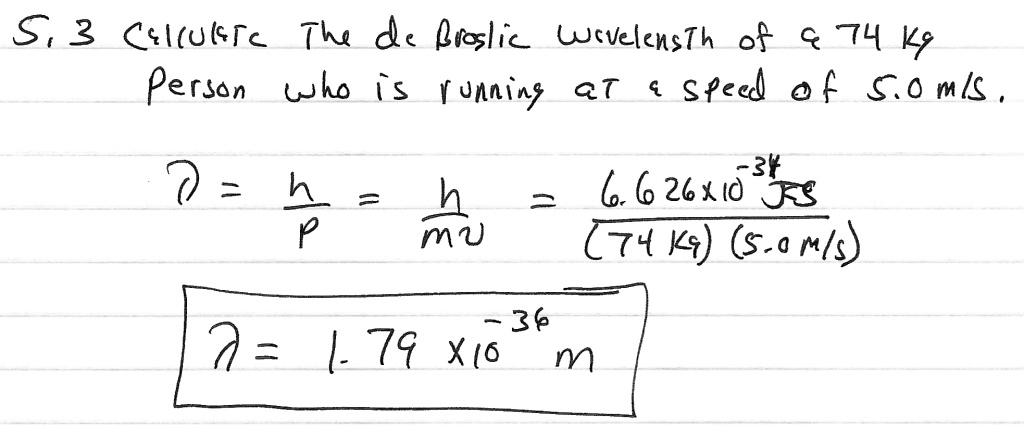 5.3 Calculate The de Broglie wavelength of a 74 kg
Person who is running at a speed of 5.0 m/s.
λ = h/p = h/mv = 6.626 x 10^-34 J·s/(74 kg) (5.0 m/s)
λ = 1.79 x 10^-36 m